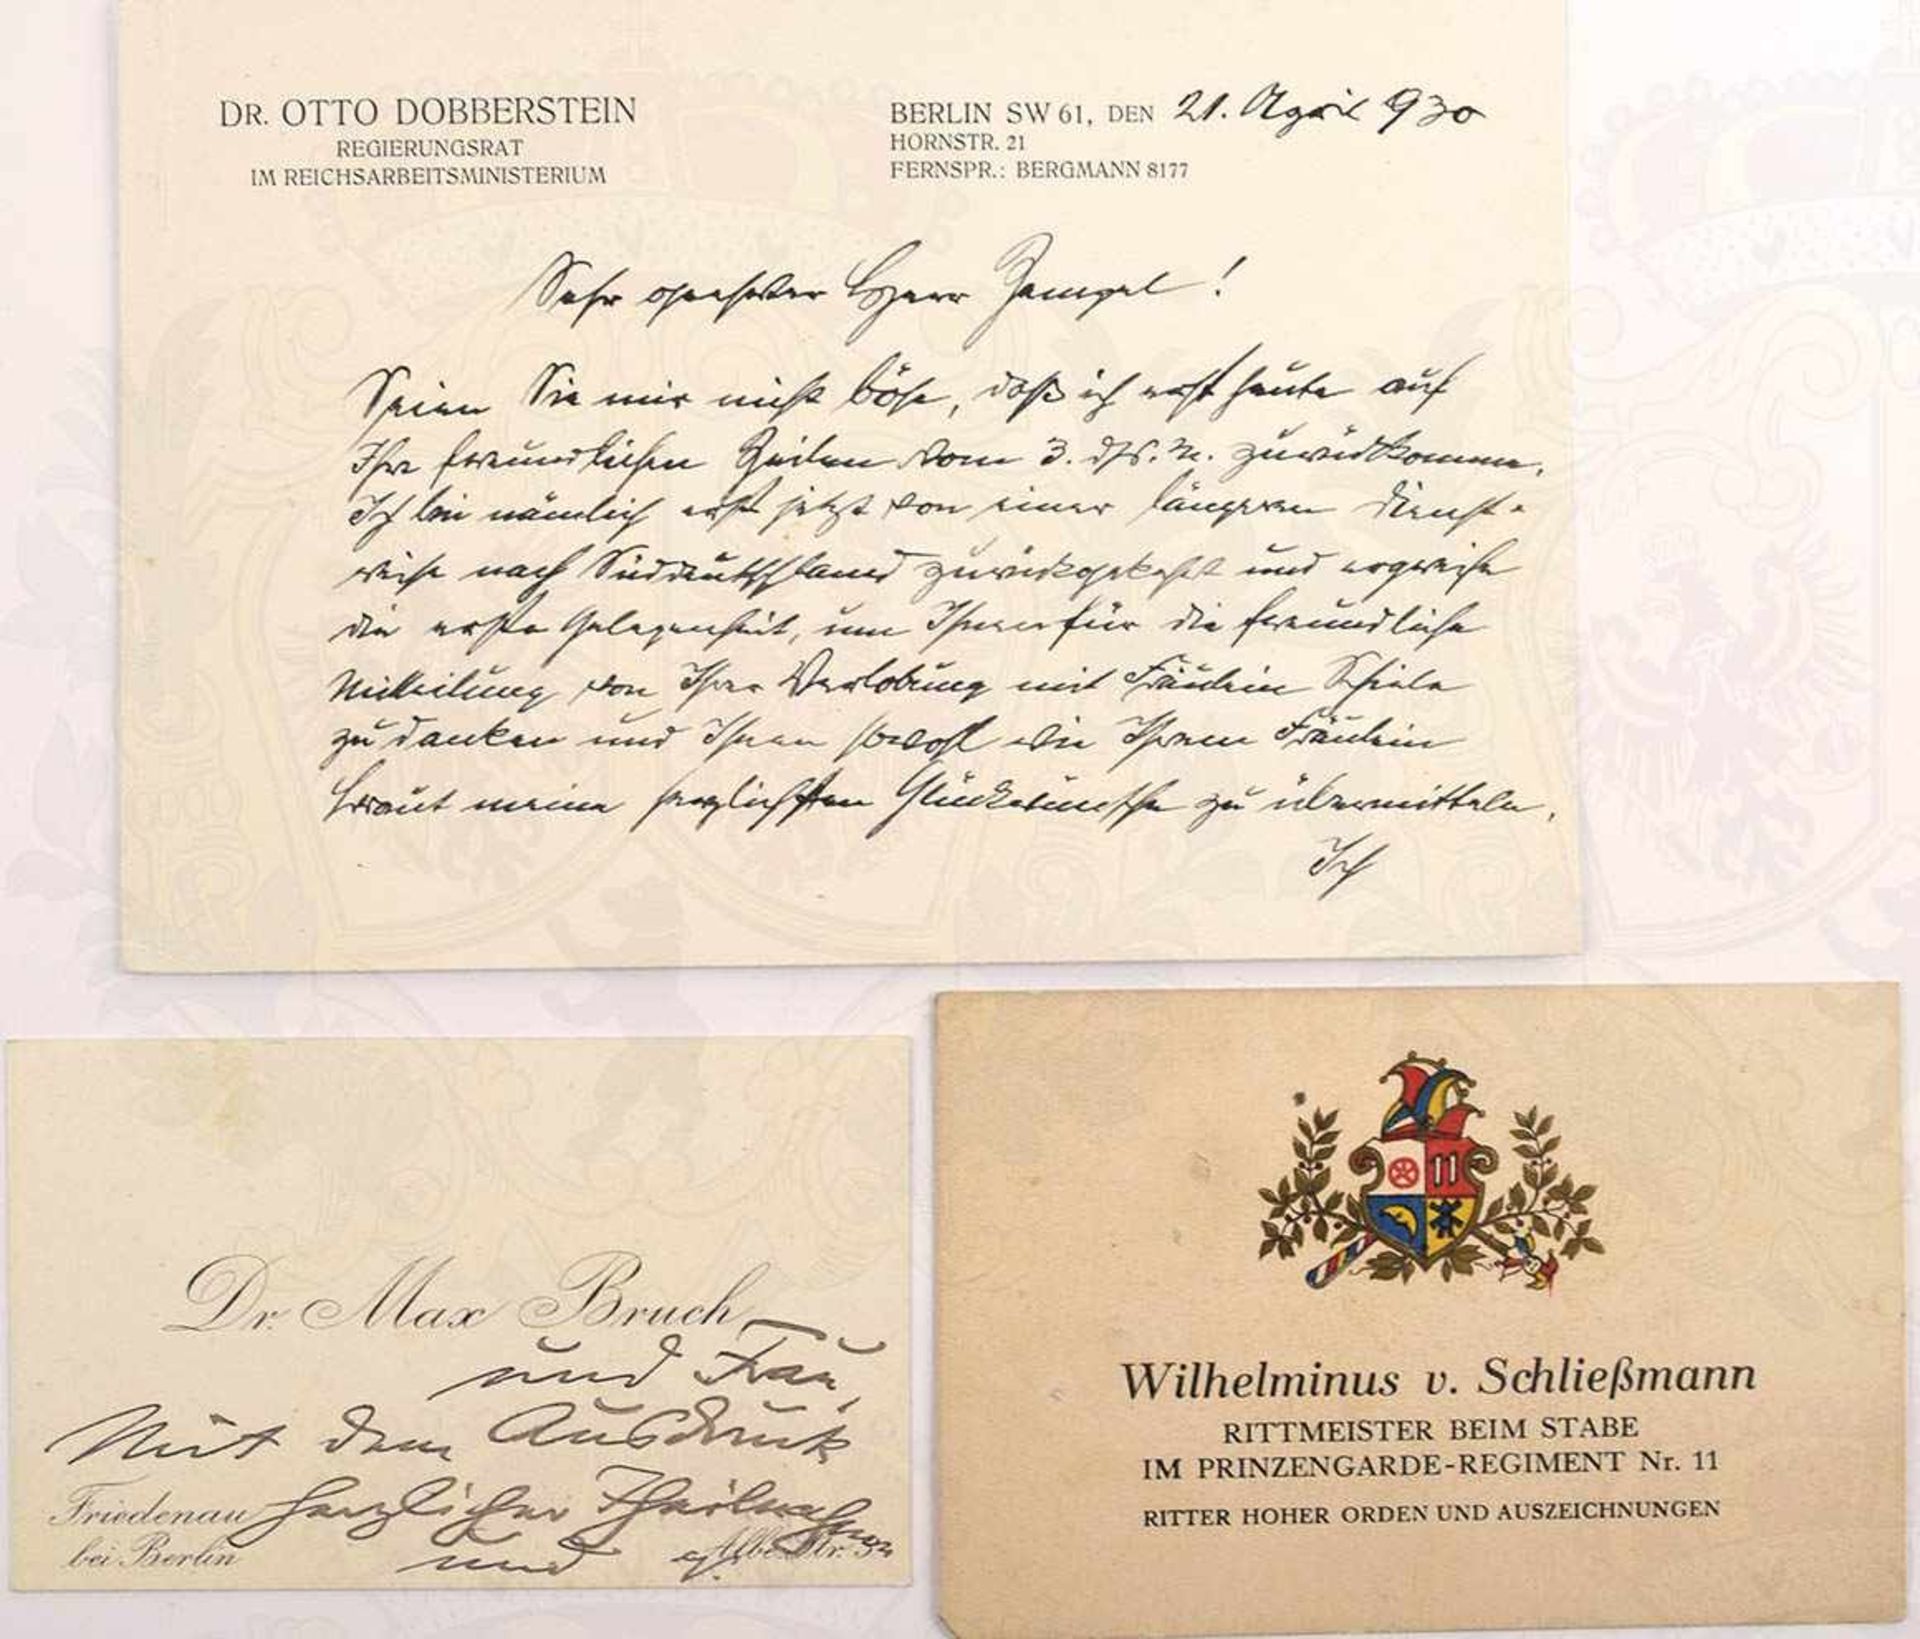 DR. OTTO DOBBERSTEIN
REGIERUNGSRAT
IM REICHSARBEITSMINISTERIUM
BERLIN SW 61, DEN 21. April 930
HORNSTR. 21
FERNSPR.: BERGMANN 8177
Sehr geehrter Herr Zempel!
Seien Sie mir nicht böse, daß ich erst heute auf
Ihre freundlichen Zeilen vom 3. ds. M. zurückkomme.
Ich bin nämlich erst jetzt von einer längeren Dienst-
reise nach Süddeutschland zurückgekehrt und ergreife
die erste Gelegenheit, um Ihnen für die freundliche
Mitteilung von Ihrer Verlobung mit Fräulein Schiele
zu danken und Ihnen sowohl wie Ihrem Fräulein
Braut meine herzlichsten Glückwünsche zu übermitteln.
Ich
Dr. Max Bruch
und Frau,
Mit dem Ausdruck
herzlicher Theilnahme
und
Friedenau
bei Berlin
Albe Str.
Wilhelminus v. Schließmann
RITTMEISTER BEIM STABE
IM PRINZENGARDE-REGIMENT Nr. 11
RITTER HOHER ORDEN UND AUSZEICHNUNGEN
11